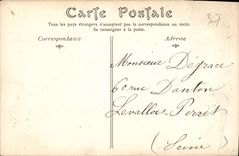 37
Carte Postale
Tous les pays étrangers n'acceptent pas la correspondance au recto.
Se renseigner à la poste.
Correspondance
Adresse
Monsieur Dégrace
60 rue Danton
Levallois-Perret
(Seine)